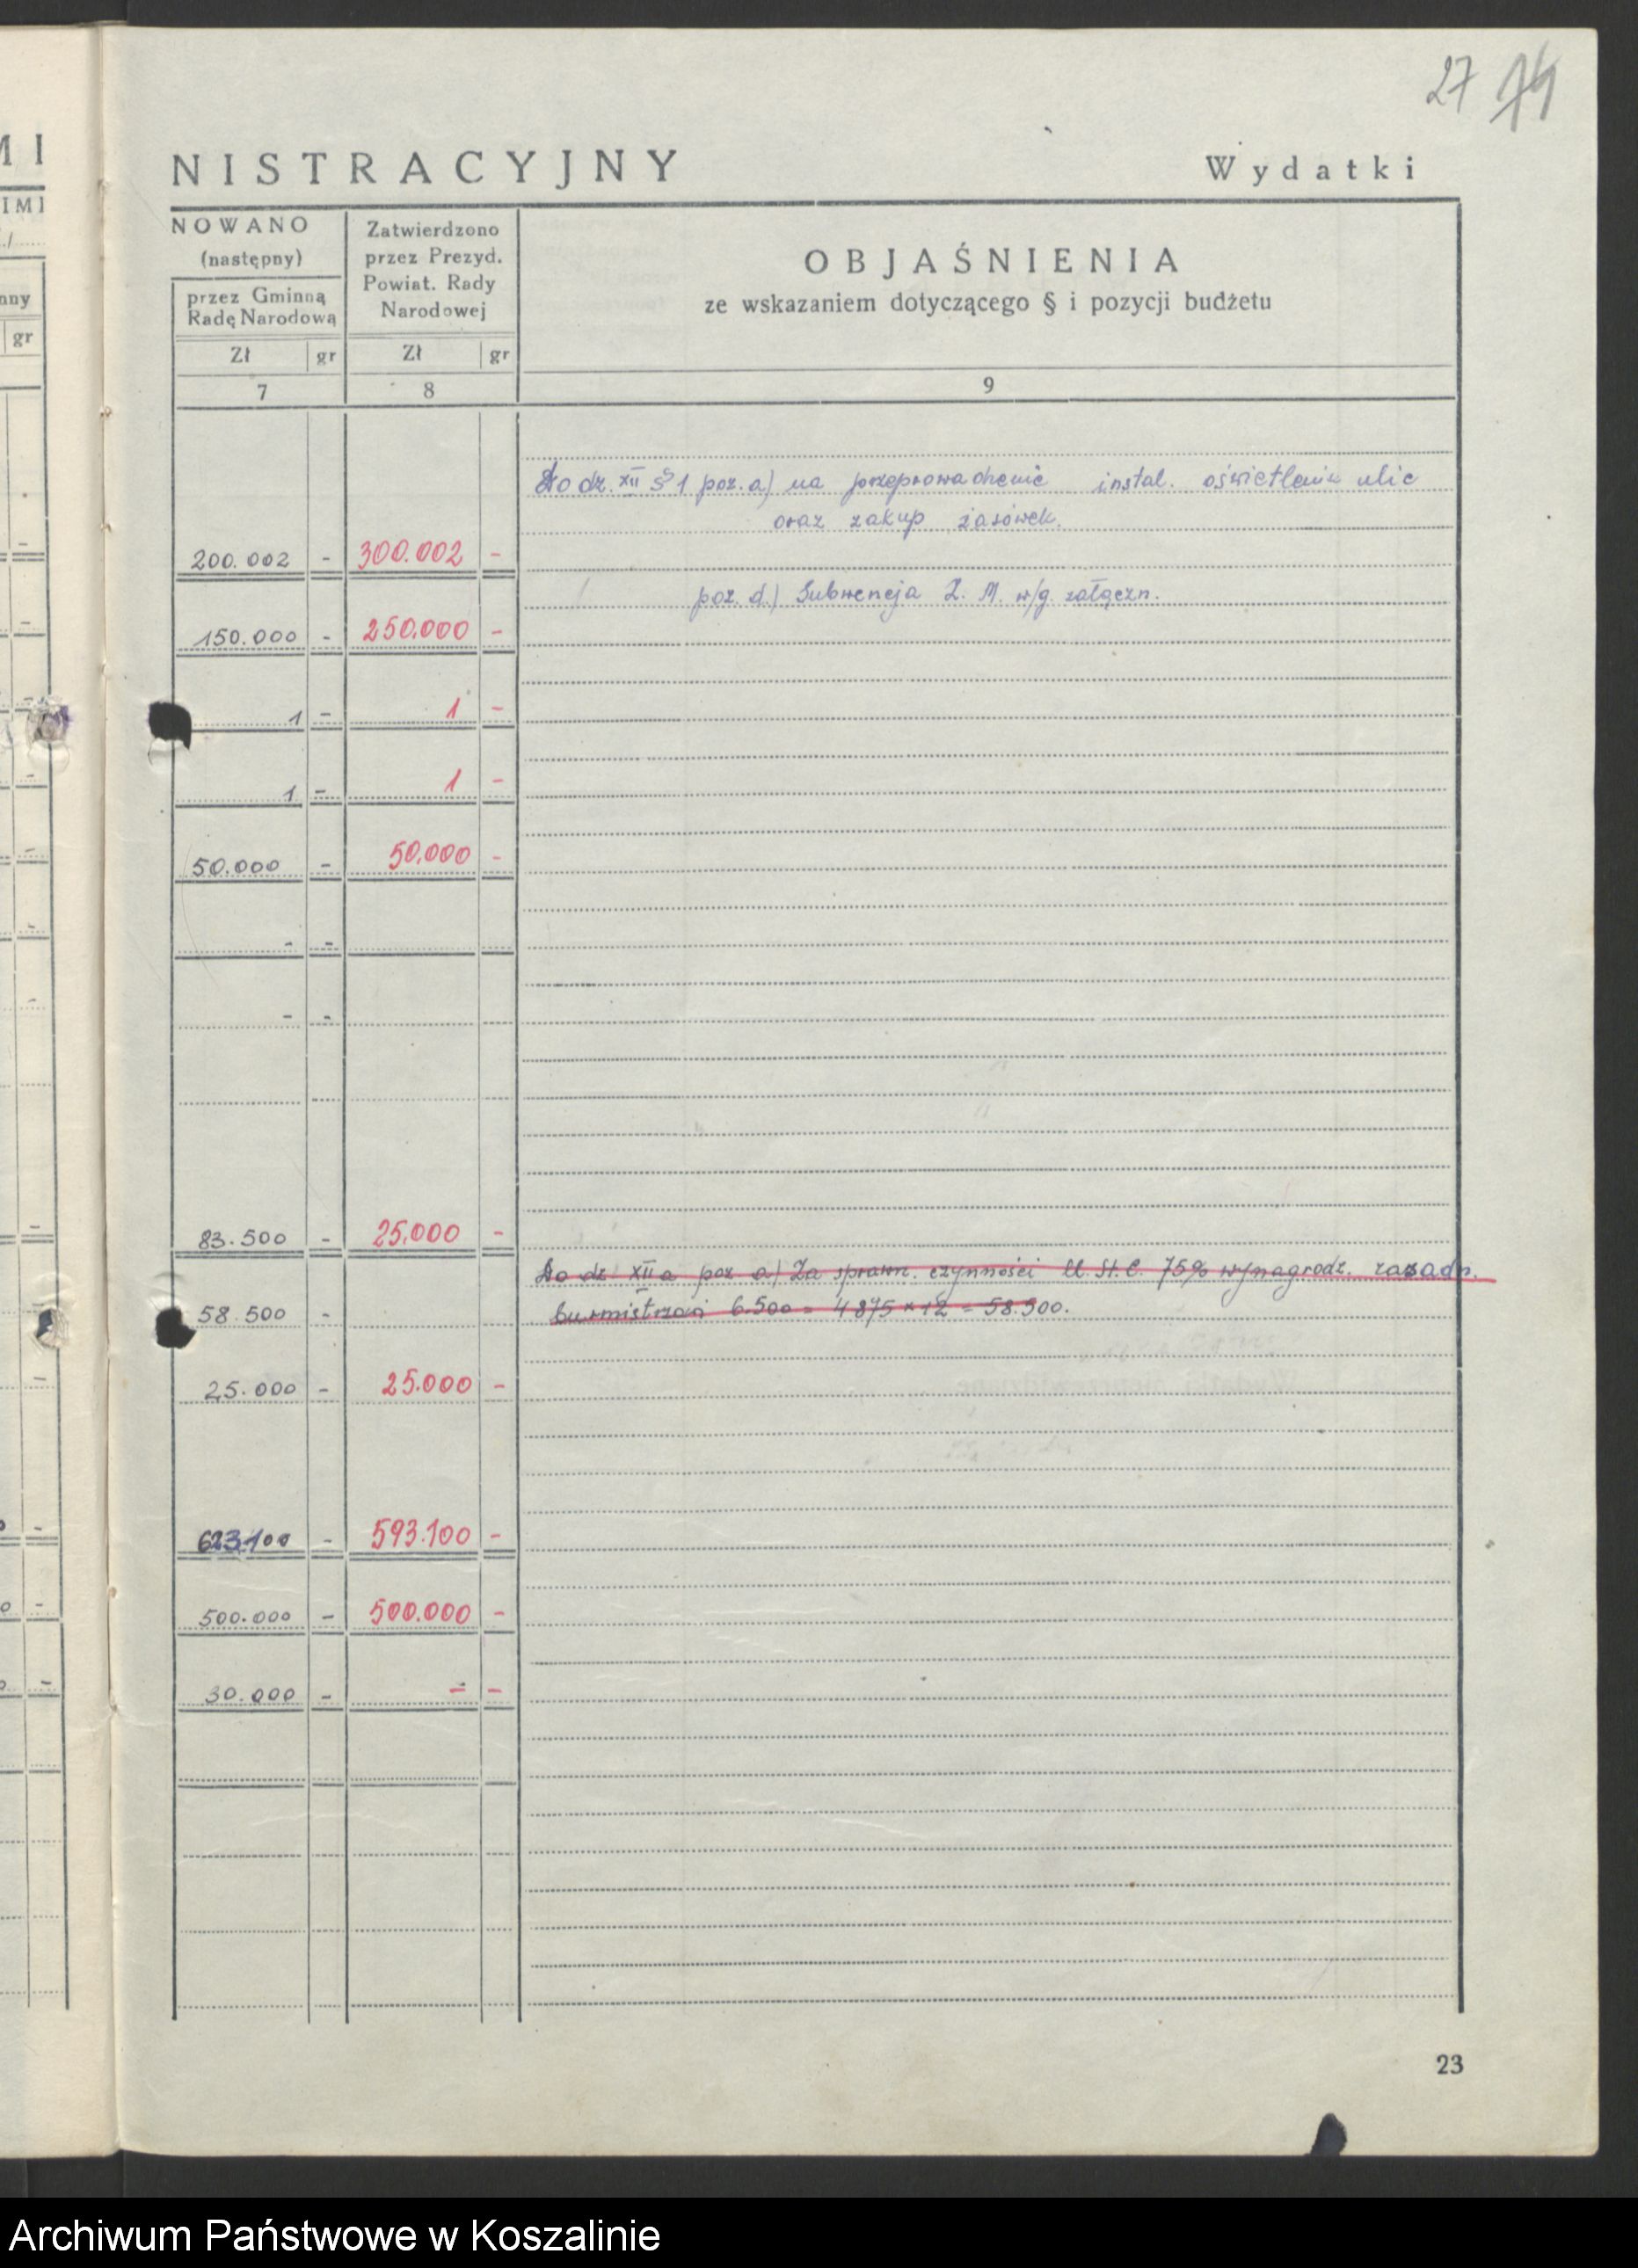 27 74
NISTRACYJNY Wydatki
NOWANO
(następny)
przez Gminną
Radę Narodową
Zatwierdzono
przez Prezyd.
Powiat. Rady
Narodowej
OBJAŚNIENIA
ze wskazaniem dotyczącego § i pozycji budżetu
Zł gr Zł gr
7 8 9
Do dz. XII § 1 poz. a) na przeprowadzenie instal. oświetlenia ulic
oraz zakup żarówek.
200.002 - 300.002 -
poz. d.) Subwencja Z. M. w/g. załączn.
150.000 - 250.000 -
1 - 1 -
1 - 1 -
50.000 - 50.000 -
- -
- -
83.500 - 25.000 -
Do dz XII a poz a) Za sprawn. czynności U. St. C. 75% wynagrodz. zasadn.
burmistrza 6.500 = 4875 x 12 = 58.500.
58.500 -
25.000 - 25.000 -
623.100 - 593.100 -
500.000 - 500.000 -
30.000 - - -
23
MI
IMI
nny
gr
Archiwum Państwowe w Koszalinie